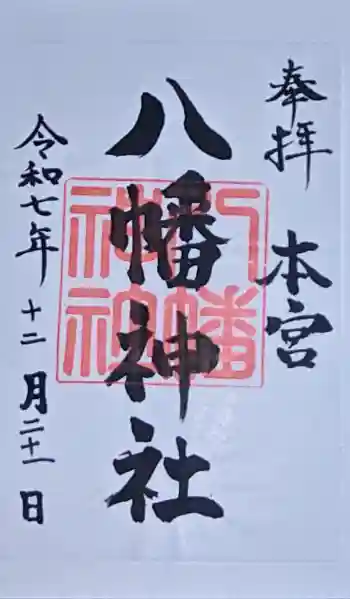 奉拝
本宮
八幡神社
八幡神社
令和七年十二月二十一日